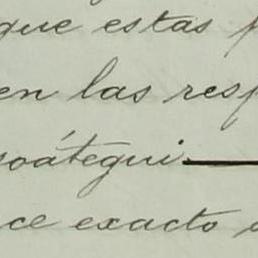 que estas
en las resp
soátegui
ce exacto